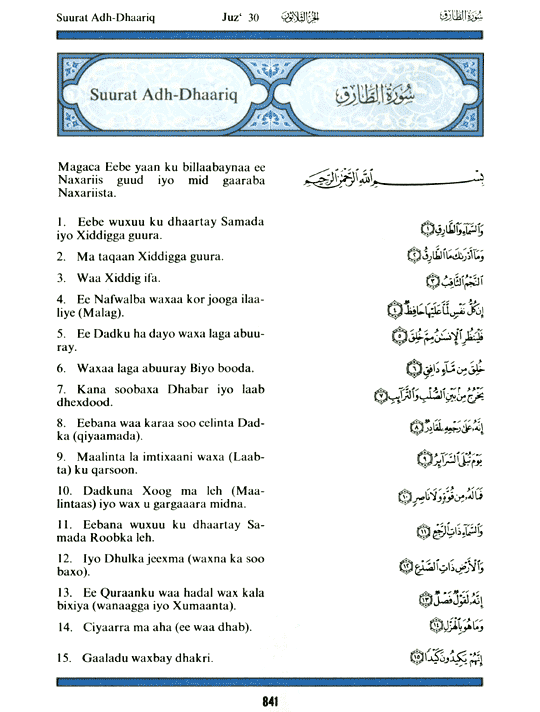 Suurat Adh-Dhaariq Juz' 30 الجزء الثلاثون سُورَة الطَّارِق
Suurat Adh-Dhaariq سُورَة الطَّارِق
Magaca Eebe yaan ku billaabaynaa ee
Naxariis guud iyo mid gaaraba
Naxariista.
بِسْمِ اللَّهِ الرَّحْمَٰنِ الرَّحِيمِ
1. Eebe wuxuu ku dhaartay Samada
iyo Xiddigga guura.
وَالسَّمَاءِ وَالطَّارِقِ ١
2. Ma taqaan Xiddigga guura.
وَمَا أَدْرَاكَ مَا الطَّارِقُ ٢
3. Waa Xiddig ifa.
النَّجْمُ الثَّاقِبُ ٣
4. Ee Nafwalba waxaa kor jooga ilaa-
liye (Malag).
إِن كُلُّ نَفْسٍ لَّمَّا عَلَيْهَا حَافِظٌ ٤
5. Ee Dadku ha dayo waxa laga abuu-
ray.
فَلْيَنظُرِ الْإِنسَانُ مِمَّ خُلِقَ ٥
6. Waxaa laga abuuray Biyo booda.
خُلِقَ مِن مَّاءٍ دَافِقٍ ٦
7. Kana soobaxa Dhabar iyo laab
dhexdood.
يَخْرُجُ مِن بَيْنِ الصُّلْبِ وَالتَّرَائِبِ ٧
8. Eebana waa karaa soo celinta Dad-
ka (qiyaamada).
إِنَّهُ عَلَىٰ رَجْعِهِ لَقَادِرٌ ٨
9. Maalinta la imtixaani waxa (Laab-
ta) ku qarsoon.
يَوْمَ تُبْلَى السَّرَائِرُ ٩
10. Dadkuna Xoog ma leh (Maa-
lintaas) iyo wax u gargaaara midna.
فَمَا لَهُ مِن قُوَّةٍ وَلَا نَاصِرٍ ١٠
11. Eebana wuxuu ku dhaartay Sa-
mada Roobka leh.
وَالسَّمَاءِ ذَاتِ الرَّجْعِ ١١
12. Iyo Dhulka jeexma (waxna ka soo
baxo).
وَالْأَرْضِ ذَاتِ الصَّدْعِ ١٢
13. Ee Quraanku waa hadal wax kala
bixiya (wanaagga iyo Xumaanta).
إِنَّهُ لَقَوْلٌ فَصْلٌ ١٣
14. Ciyaarra ma aha (ee waa dhab).
وَمَا هُوَ بِالْهَزْلِ ١٤
15. Gaaladu waxbay dhakri.
إِنَّهُمْ يَكِيدُونَ كَيْدًا ١٥
841